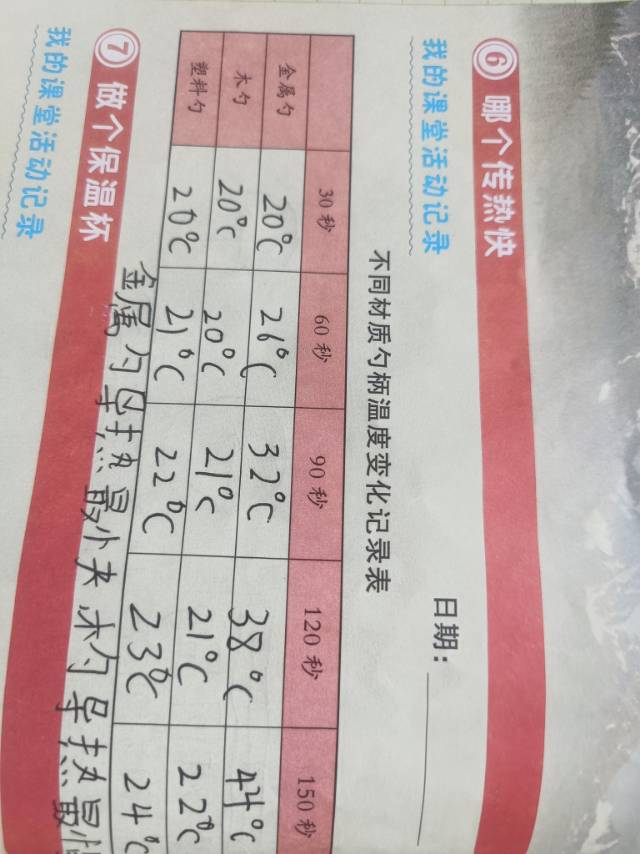 ⑥ 哪个传热快
我的课堂活动记录
日期：
不同材质勺柄温度变化记录表
30秒 60秒 90秒 120秒 150秒
金属勺 20℃ 26℃ 32℃ 38℃ 44℃
木勺 20℃ 20℃ 21℃ 21℃ 22℃
塑料勺 20℃ 21℃ 22℃ 23℃ 24℃
金属勺导热最快 木勺导热最慢
⑦ 做个保温杯
我的课堂活动记录